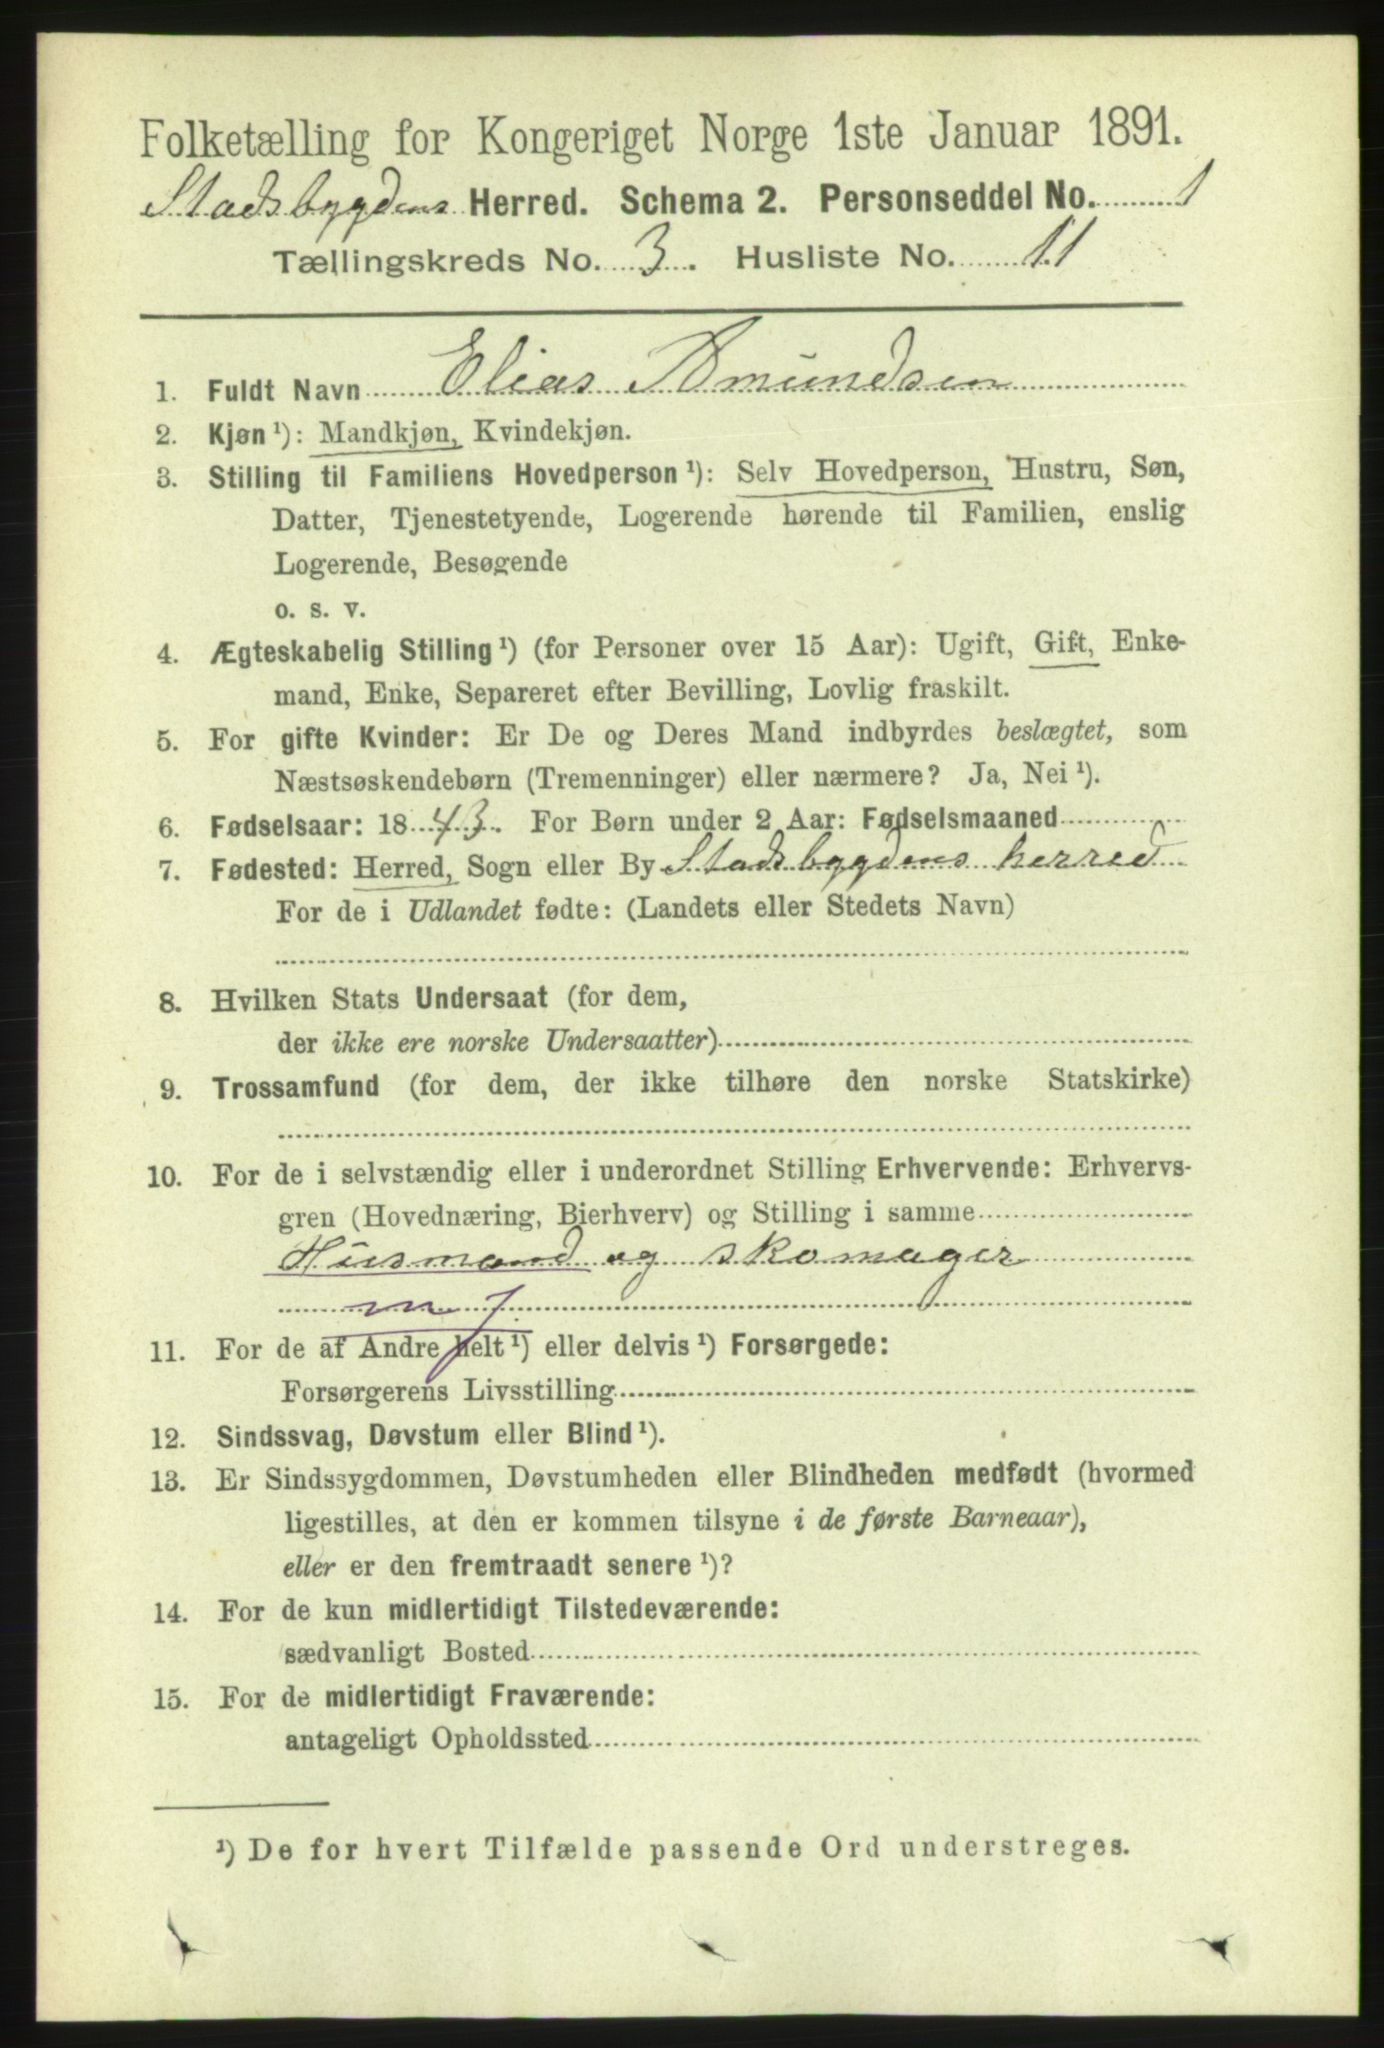 Folketælling for Kongeriget Norge 1ste Januar 1891.
Stadsbygdens Herred. Schema 2. Personseddel No. 1
Tællingskreds No. 3. Husliste No. 11
1. Fuldt Navn Elias Amundsen
2. Kjøn¹): Mandkjøn, Kvindekjøn.
3. Stilling til Familiens Hovedperson¹): Selv Hovedperson, Hustru, Søn,
Datter, Tjenestetyende, Logerende hørende til Familien, enslig
Logerende, Besøgende
o. s. v.
4. Ægteskabelig Stilling¹) (for Personer over 15 Aar): Ugift, Gift, Enke-
mand, Enke, Separeret efter Bevilling, Lovlig fraskilt.
5. For gifte Kvinder: Er De og Deres Mand indbyrdes beslægtet, som
Næstsøskendebørn (Tremenninger) eller nærmere? Ja, Nei¹).
6. Fødselsaar: 1843. For Børn under 2 Aar: Fødselsmaaned
7. Fødested: Herred, Sogn eller By Stadsbygdens herred
For de i Udlandet fødte: (Landets eller Stedets Navn)
8. Hvilken Stats Undersaat (for dem,
der ikke ere norske Undersaatter)
9. Trossamfund (for dem, der ikke tilhøre den norske Statskirke)
10. For de i selvstændig eller i underordnet Stilling Erhvervende: Erhvervs-
gren (Hovednæring, Bierhverv) og Stilling i samme
Husmand og skomager
m j
11. For de af Andre helt¹) eller delvis¹) Forsørgede:
Forsørgerens Livsstilling
12. Sindssvag, Døvstum eller Blind¹).
13. Er Sindssygdommen, Døvstumheden eller Blindheden medfødt (hvormed
ligestilles, at den er kommen tilsyne i de første Barneaar),
eller er den fremtraadt senere¹)?
14. For de kun midlertidigt Tilstedeværende:
sædvanligt Bosted
15. For de midlertidigt Fraværende:
antageligt Opholdssted
¹) De for hvert Tilfælde passende Ord understreges.